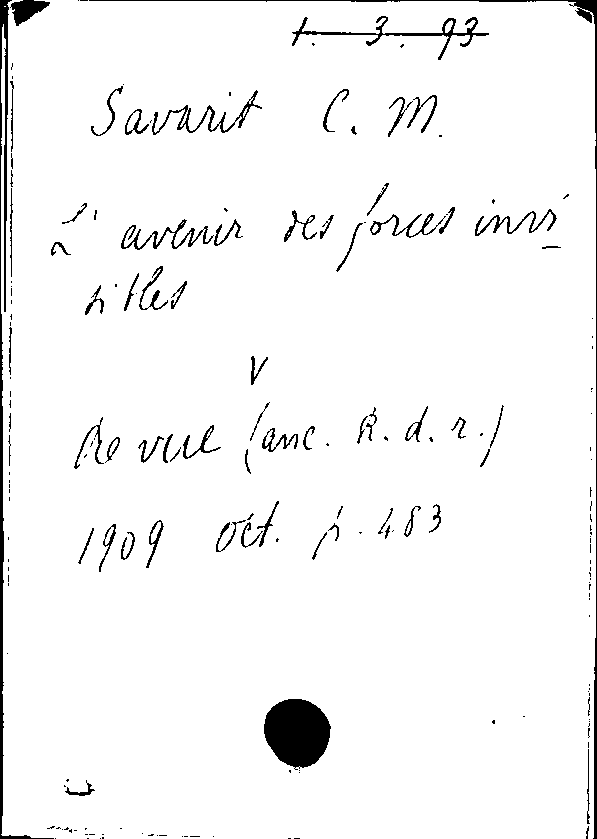 1. 3. 93
Savarit C. M.
L'avenir des forces invi-
sibles
V
Revue (anc. R. d. r.)
1909 oct. p. 483